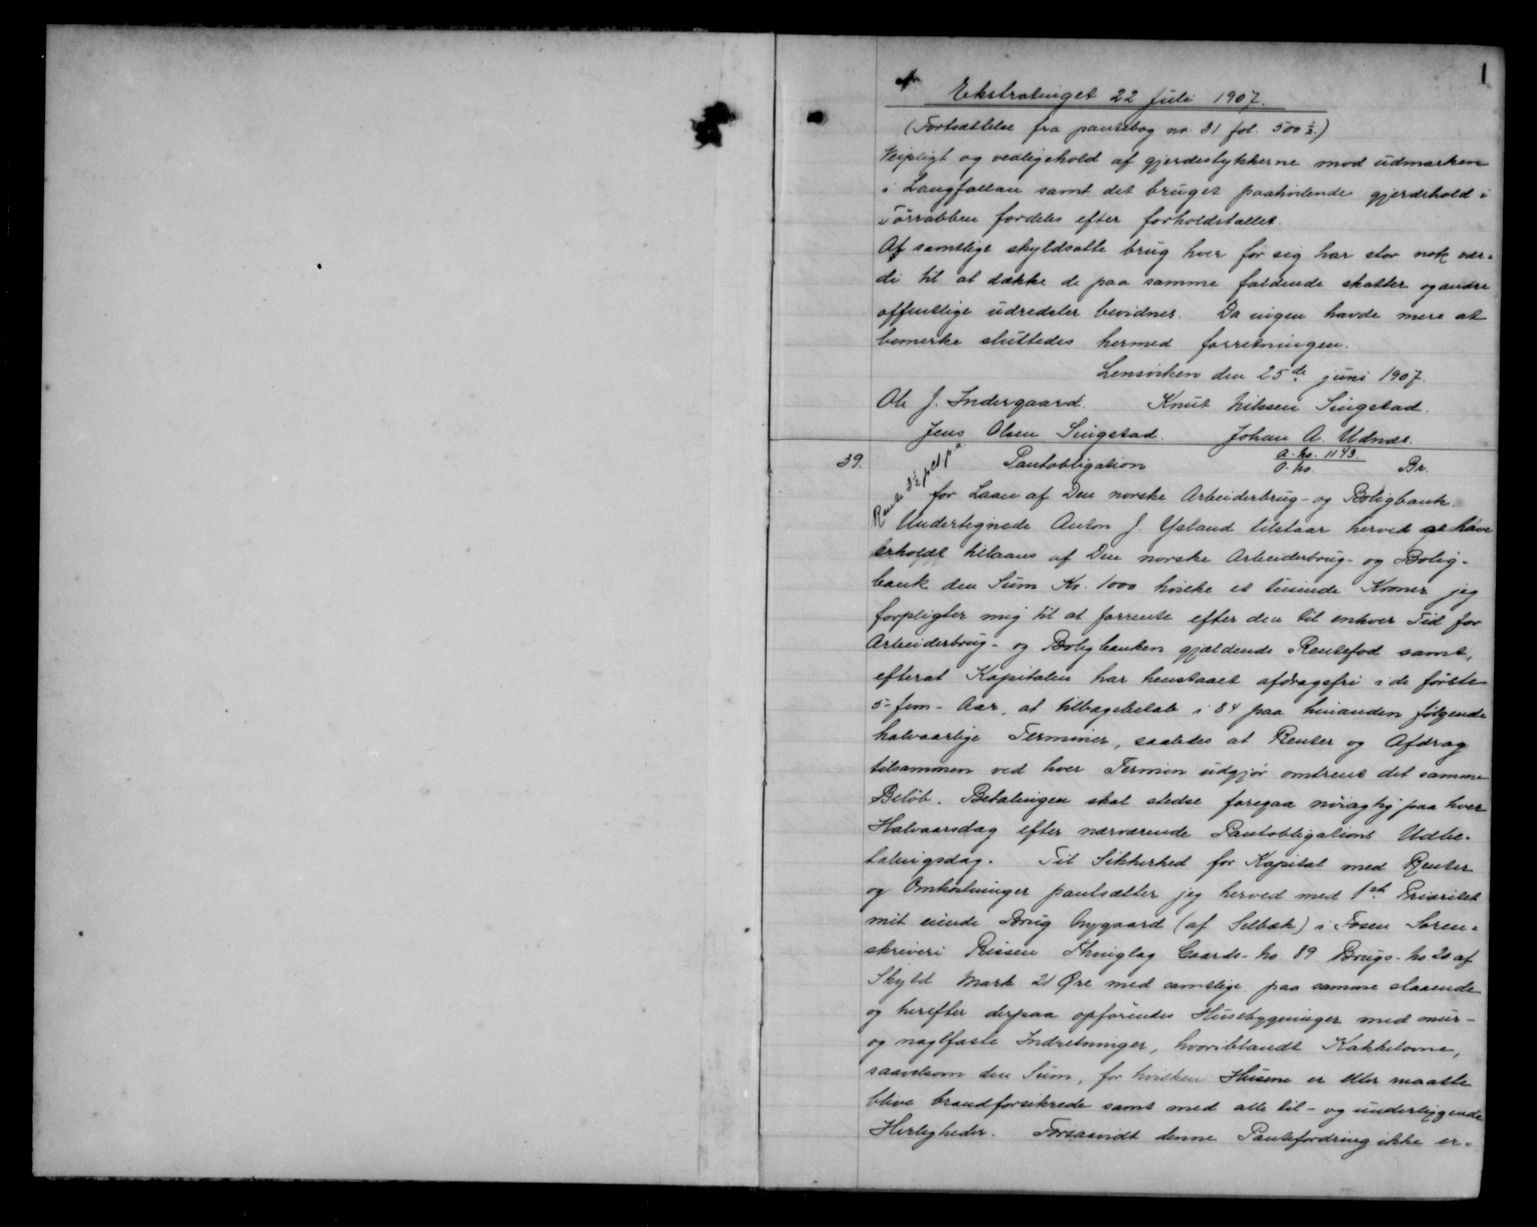 1
Ekstratinget 22 juli 1907.
(Fortsættelse fra pantebog nr. 31 fol. 500½)
Veipligt og vedligehold af gjerdestykkerne mod udmarken
i Langfallan samt det bruget paahvilende gjerdehold i
Törrabben fordeles efter forholdstallet.
At samtlige skyldsatte brug hver for sig har stor nok vær-
di til at dække de paa samme faldende skatter og andre
offentlige udredsler bevidnes. Da ingen havde mere at
bemerke sluttedes hermed forretningen.
Lensviken den 25de juni 1907.
Ole J. Indergaard. Knut Nilssen Singstad.
Jens Olsen Singstad. Johan A. Udnæs.
39. Pantobligation A. No. 1143. O. No. Br.
Rente 3½ pct p a
for Laan af Den norske Arbeiderbrug- og Boligbank.
Undertegnede Anton J. Ysland tilstaar herved at have
erholdt tillaans af Den norske Arbeiderbrug- og Bolig-
bank den Sum Kr. 1000 hvilke et tusinde Kroner jeg
forpligter mig til at forrente efter den til enhver Tid for
Arbeiderbrug- og Boligbanken gjældende Rentefod samt,
efterat Kapitalen har henstaaet afdragsfri i de første
5-fem-Aar, at tilbagebetale i 84 paa hinanden følgende
halvaarlige Terminer, saaledes at Renter og Afdrag
tilsammen ved hver Termin udgjør omtrent det samme
Beløb. Betalingen skal stedse foregaa nøiagtig paa hver
Halvaarsdag efter nærværende Pantobligations Udbe-
talingsdag. Til Sikkerhed for Kapital med Renter
og Omkostninger pantsætter jeg herved med 1ste Prioritet
mit eiende Brug Nygaard (af Selbæk) i Fosen Soren-
skriveri Rissen Thinglag Gaards-No 89 Brugs-No 20 af
Skyld Mark 21 Øre med samtlige paa samme staaende
og herefter derpaa opførendes Husebygninger med mur-
og naglfaste Indretninger, hvoriblandt Kakkelovne,
saavelsom den Sum, for hvilken Husene er eller maatte
blive brandforsikrede samt med alle til- og underliggende
Herligheder. Forsaavidt denne Pantefordring ikke er-